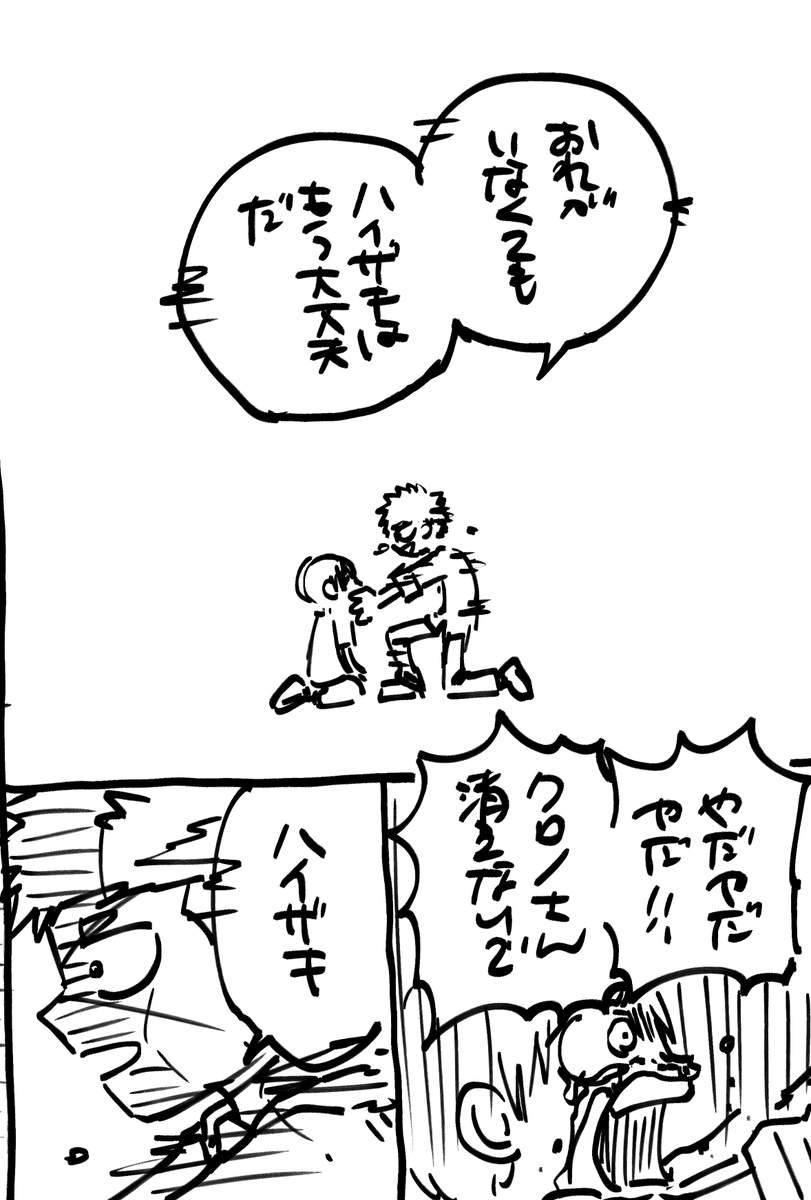 おれが
いなくても
ハイザキは
もう大丈夫
だ
やだやだ
やだ!!
クロノさん
消えないで
ハイザキ